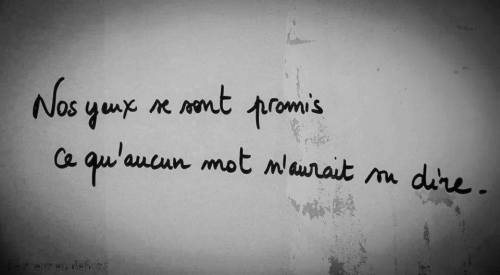 Nos yeux se sont promis
ce qu'aucun mot n'aurait su dire.